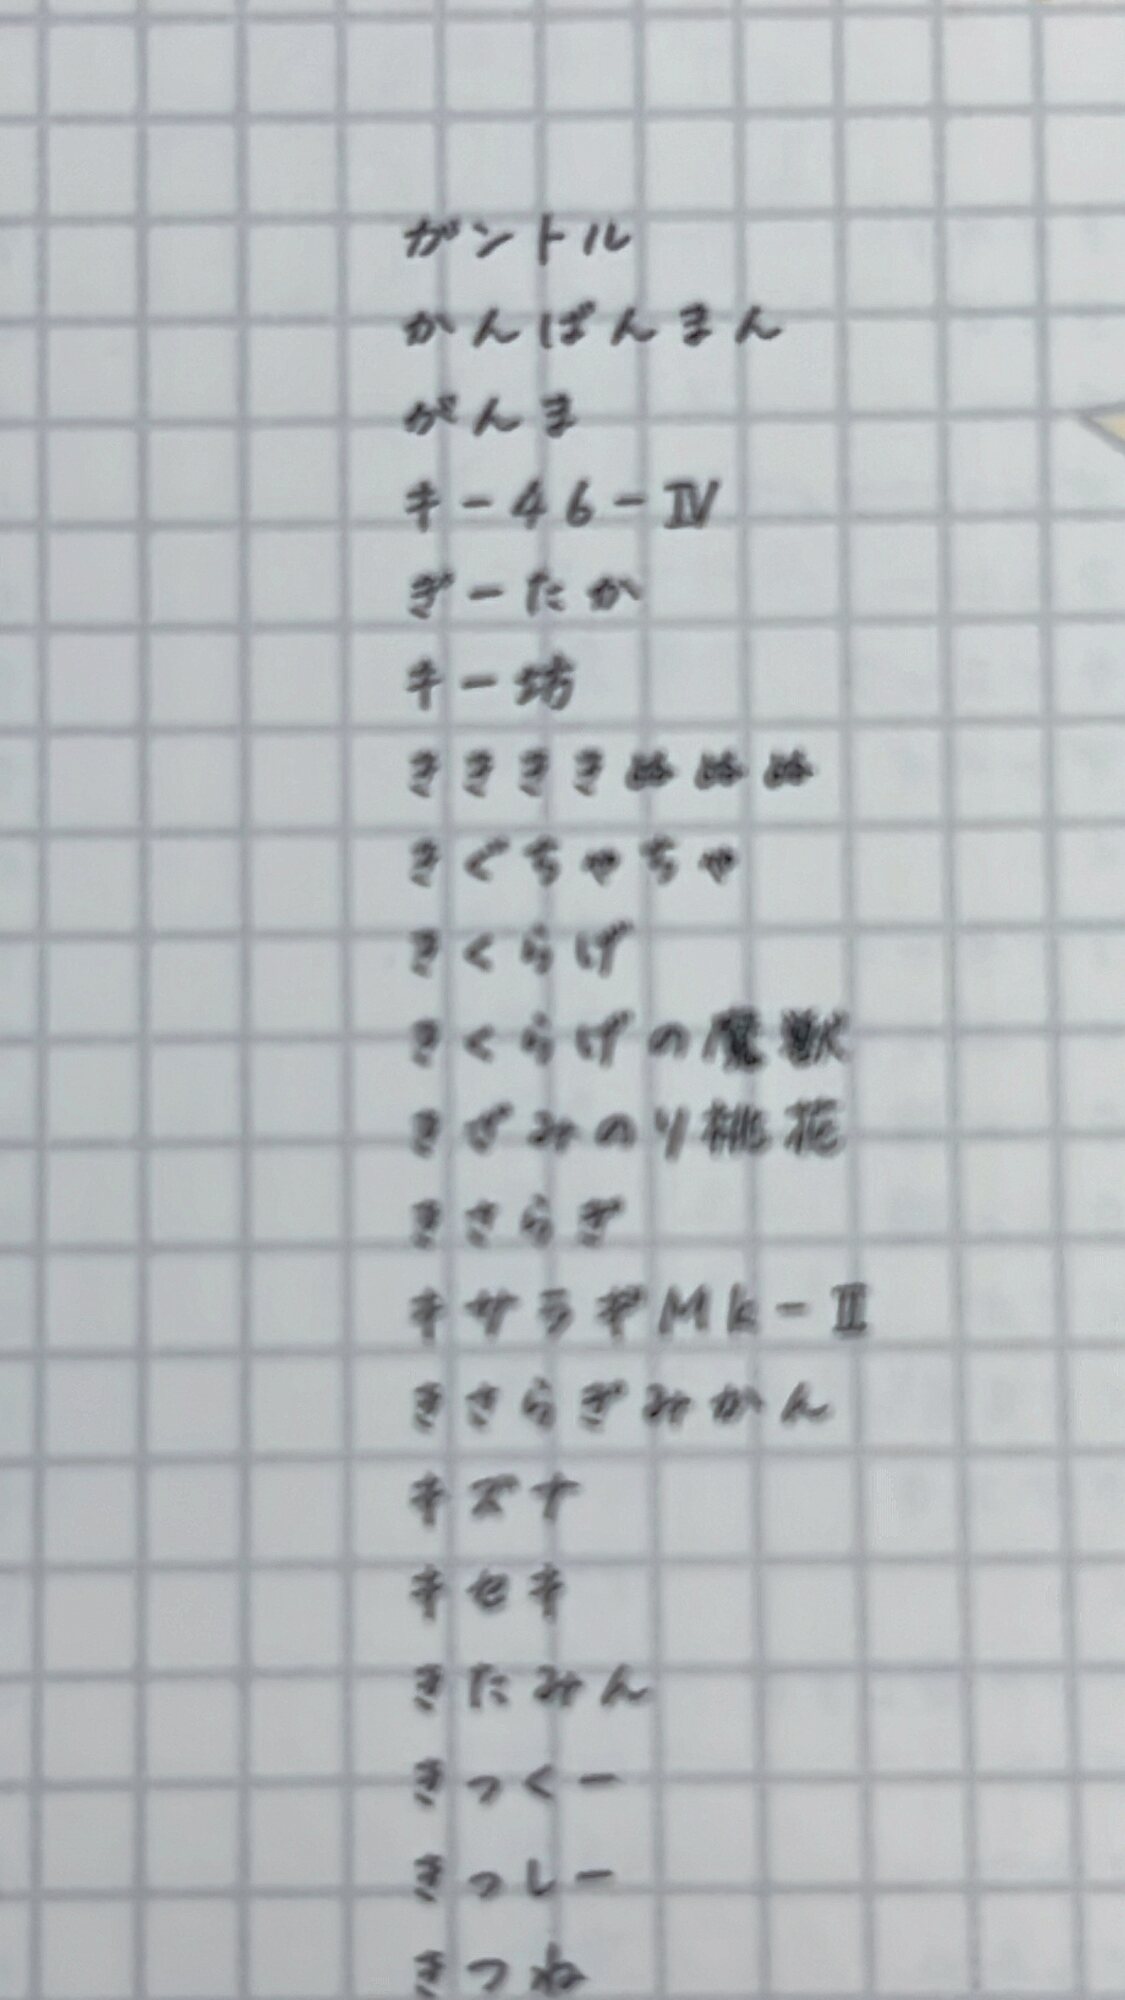 ガントル
かんぱんまん
がんま
キ-46-Ⅳ
ぎーたか
キー坊
ききききぬぬぬ
きぐちゃちゃ
きくらげ
きくらげの魔獣
きざみのり桃花
きさらぎ
キサラギMk-Ⅱ
きさらぎみかん
キズナ
キセキ
きたみん
きっくー
きっしー
きつね